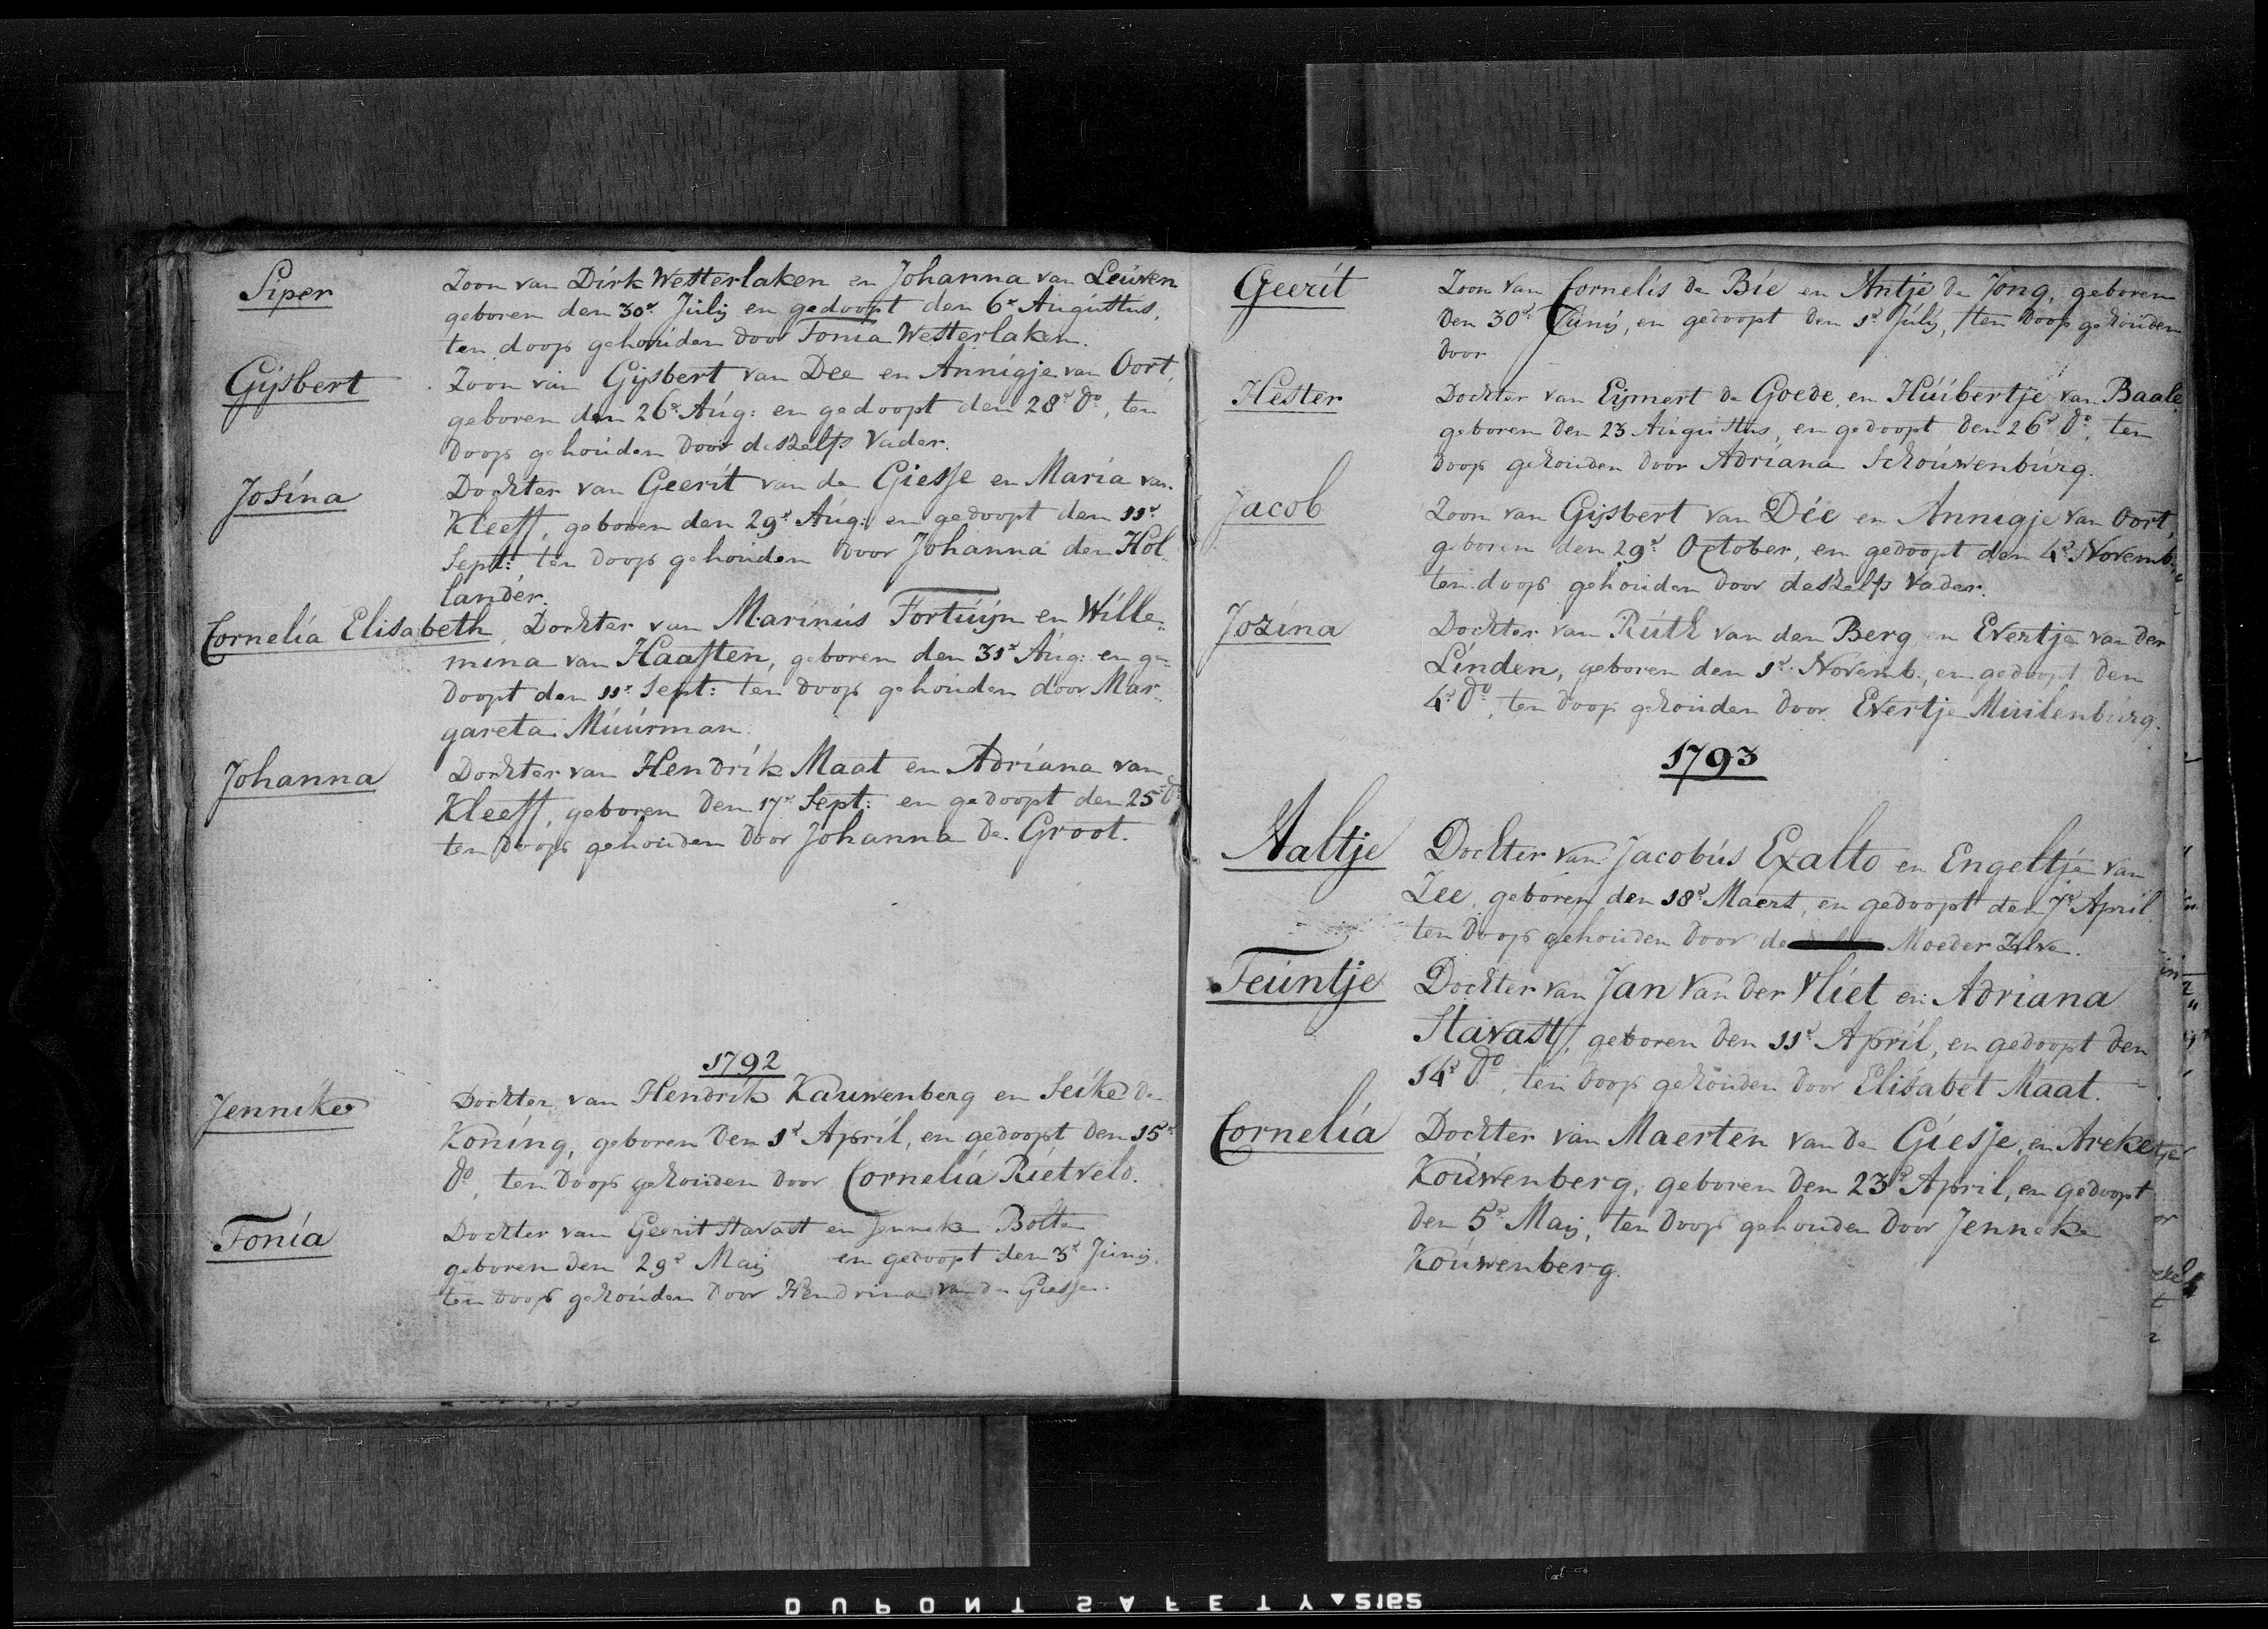 Siper Zoon van Dirk Westerlaken en Johanna van Leuwen
geboren den 30e July en gedoopt den 6e Augustus,
ten doop gehouden door Tonia Westerlaken.
Gijsbert Zoon van Gijsbert van Dee en Annigje van Oort,
geboren den 26e Aug: en gedoopt den 28e do, ten
doop gehouden door deszelfs Vader.
Josina Dochter van Geerit van de Giesse en Maria van
Kleeff, geboren den 29e Aug: en gedoopt den 11e
Sept: ten doop gehouden door Johanna den Hol
lander.
Cornelia Elisabeth, Dochter van Marinus Fortuijn en Wille„
mina van Haaften, geboren den 31e Aug: en ge„
doopt den 11e Sept: ten doop gehouden door Mar„
gareta Muurman.
Johanna Dochter van Hendrik Maat en Adriana van
Kleeff, geboren den 17e Sept: en gedoopt den 25e do
ten doop gehouden door Johanna de Groot.
1792
Jenneke Dochter van Hendrik Kauwenberg en Seike de
Koning, geboren den 1e April, en gedoopt den 15e
do, ten doop gehouden door Cornelia Rietveld.
Tonia Dochter van Geerit Stavast en Jenneke Bolte
geboren den 29e Maij en gedoopt den 3e Junij.
ten doop gehouden door Hendrina van de Giesse.
Geerit Zoon van Cornelis de Bie en Antje de Jong, geboren
den 30e Junij, en gedoopt den 1e Julij, ten doop gehouden
door
Hester Dochter van Eijmert de Goede, en Huibertje van Baale
geboren den 23 Augustus, en gedoopt den 26e do, ten
doop gehouden door Adriana Schouwenburg.
Jacob Zoon van Gijsbert van Dee en Annigje van Oort,
geboren den 29e October, en gedoopt den 4e Novemb.,
ten doop gehouden door deszelfs Vader.
Jozina Dochter van Ruth van den Berg en Evertje van der
Linden, geboren den 1e Novemb., en gedoopt den
4e do, ten doop gehouden door Evertje Muilenburg.
1793
Aaltje Dochter van Jacobus Exalto en Engeltje van
Zee, geboren den 18e Maert, en gedoopt den 7e April
ten doop gehouden door de Moeder Zelve.
Teuntje Dochter van Jan van der Vliet en Adriana
Stavast, geboren den 11e April, en gedoopt den
14e do, ten doop gehouden door Elisabet Maat.
Cornelia Dochter van Maerten van de Giesse, en Areke
Kouwenberg, geboren den 23e April, en gedoopt
den 5e Maij, ten doop gehouden door Jenneke
Kouwenberg.
DUPONT SAFETY